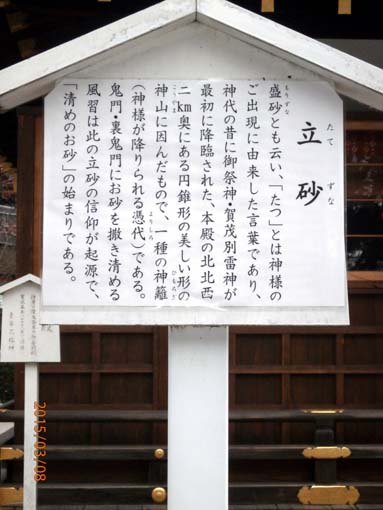 立砂
たてずな
盛砂とも云い、「たつ」とは神様の
もりずな
ご出現に由来した言葉であり、
神代の昔に御祭神・賀茂別雷神が
最初に降臨された、本殿の北北西
二km奥にある円錐形の美しい形の
神山に因んだもので、一種の神籬
こうやま
ひもろぎ
(神様が降りられる憑代)である。
よりしろ
鬼門・裏鬼門にお砂を撒き清める
風習は此の立砂の信仰が起源で、
「清めのお砂」の始まりである。
2015/03/08